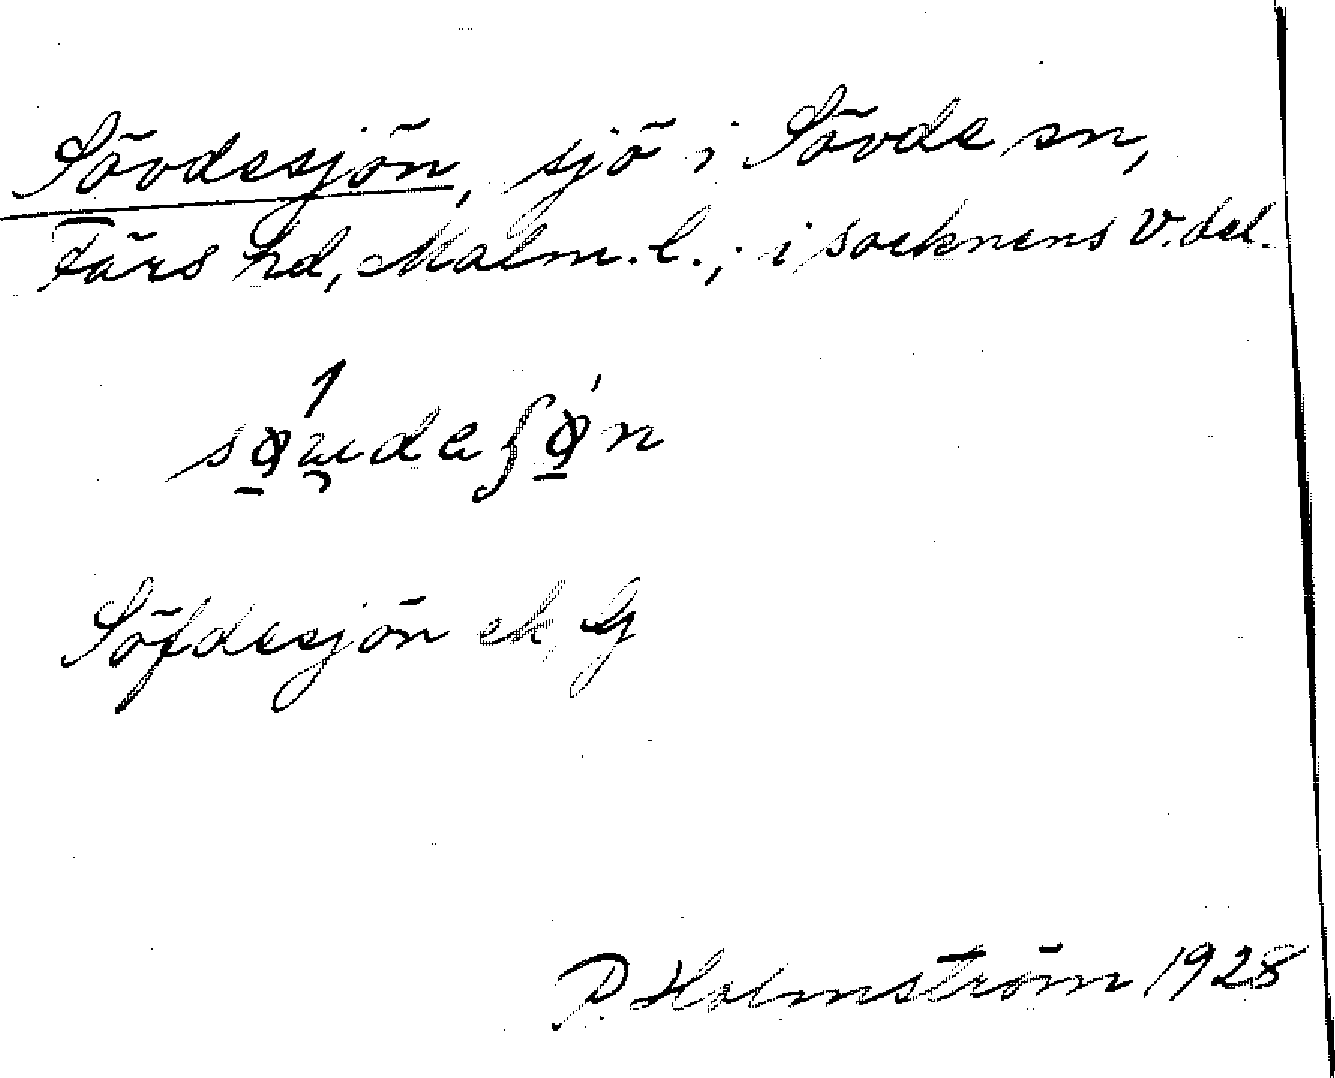 Sövdesjön, sjö i Sövde sn,
Färs hd, Malm. l.; i socknens V. del.
Söfdesjön ek, G
P. Holmström 1928